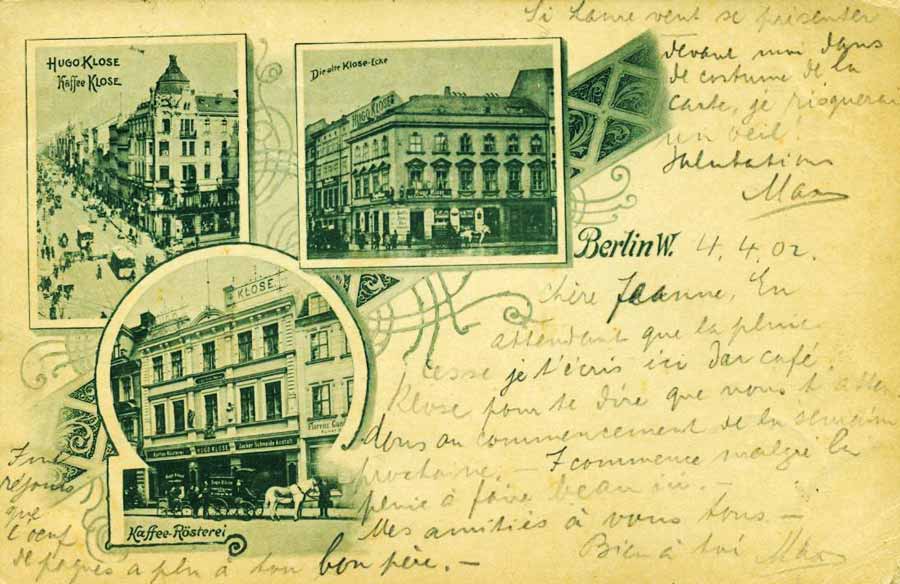 HUGO KLOSE
Kaffee KLOSE.
Die alte Klose-Ecke
HUGO KLOSE
KLOSE
HUGO KLOSE
Kaffee-Rösterei
Zucker Schneide Anstalt
Kaffee-Rösterei
Berlin W. 4.4.02.
Chère Jeanne, En
attendant que la pluie
cesse je t'écris ici dar café
Klose pour te dire que nous t'atten
dons au commencement de la semaine
prochaine. - Il commence malgré la
pluie à faire beau ici. -
Mes amitiés à vous tous -
Bien à toi Max
Je me
réjouis
que
l'oeuf
de pâques a plu à ton bon père. -
Si Lame veut se présenter
devant moi dans
de costume de la
carte, je risquerai
un oeil.
Salutation
Max